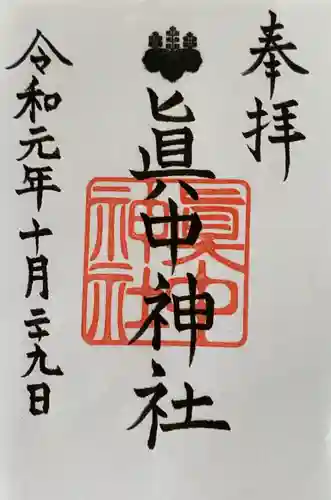 奉拝
眞中神社
眞中
神社
令和元年十月二十九日